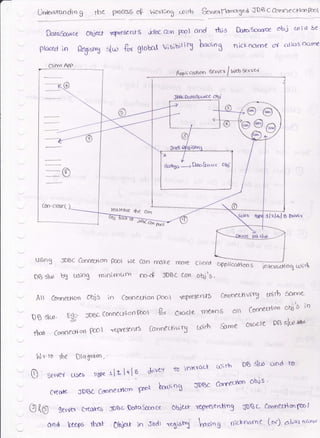 Understanding the process of working with ServerManaged JDBC ConnectionPool
DataSource object represents jdbc con pool and this DataSource obj will be
placed in Registry s/w for global visibility having nickname or alias name
Client App
Application server / Web server
JDBC DataSource obj
Jndi Registry
DataSource obj
con.close()
uses type 1/2/4/5 Driver
using JDBC Connection pool we can make more client applications interacting with
DB s/w by using minimum no.of JDBC con obj's.
All Connection objs in Connection pool represents connectivity with same
DB s/w. Eg:- JDBC ConnectionPool for Oracle means all Connection obj's in
that Connection pool represents Connectivity with same oracle DB s/w
W.r.to the Diagram,
① server uses type 1/2/4/5 driver to interact with DB s/w and to
create JDBC Connection pool having JDBC Connection objs.
Server creates JDBC DataSource object representing JDBC Connection pool
and keeps that object in Jndi registry having nickname (or) alias name